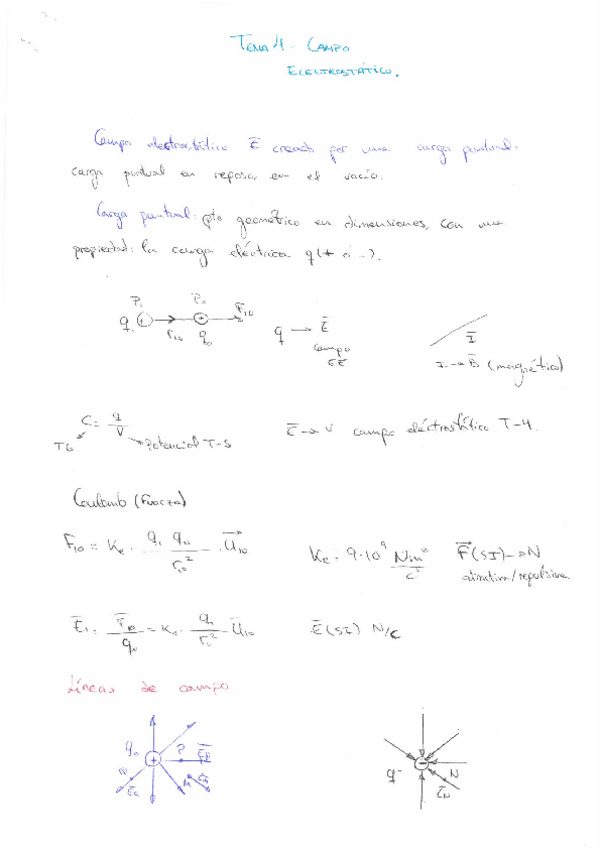 TEMA 4 - CAMPO
ELECTROSTÁTICO.
Campo electrostático E creado por una carga puntual:
carga puntual en reposo, en el vacío.
Carga puntual: pto geométrico en dimensiones, con una
propiedad: la carga eléctrica q(+ ó -).
P₁ P₀ F₁₀
q₁ + r₁₀ + q₀
q → E
campo
EE
I
I → B (magnético)
C = q/V
T6 Potencial T-5
E → V campo eléctrostático T-4.
Coulomb (Fuerza)
F₁₀ = Ke · q₁ q₀ / r₁₀² · u₁₀
Ke = 9·10⁹ Nm²/C²
F (SI) → N
atractiva/repulsiva
E₁ = F₁₀/q₀ = Ke · q₁/r₁₀² · u₁₀
E (SI) N/C
Líneas de campo
+ P
M
q⁻ - N
E_N